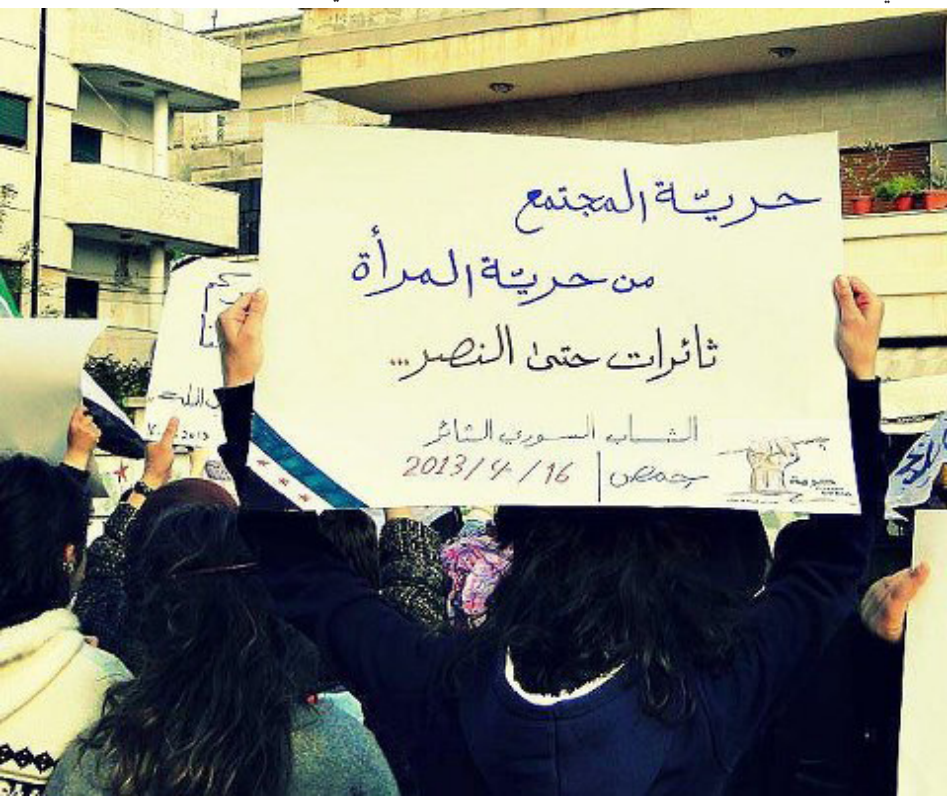 حريّة المجتمع
من حريّة المرأة
ثائرات حتى النصر...
الشباب السوري الثائر
حمص | 2013/4/16